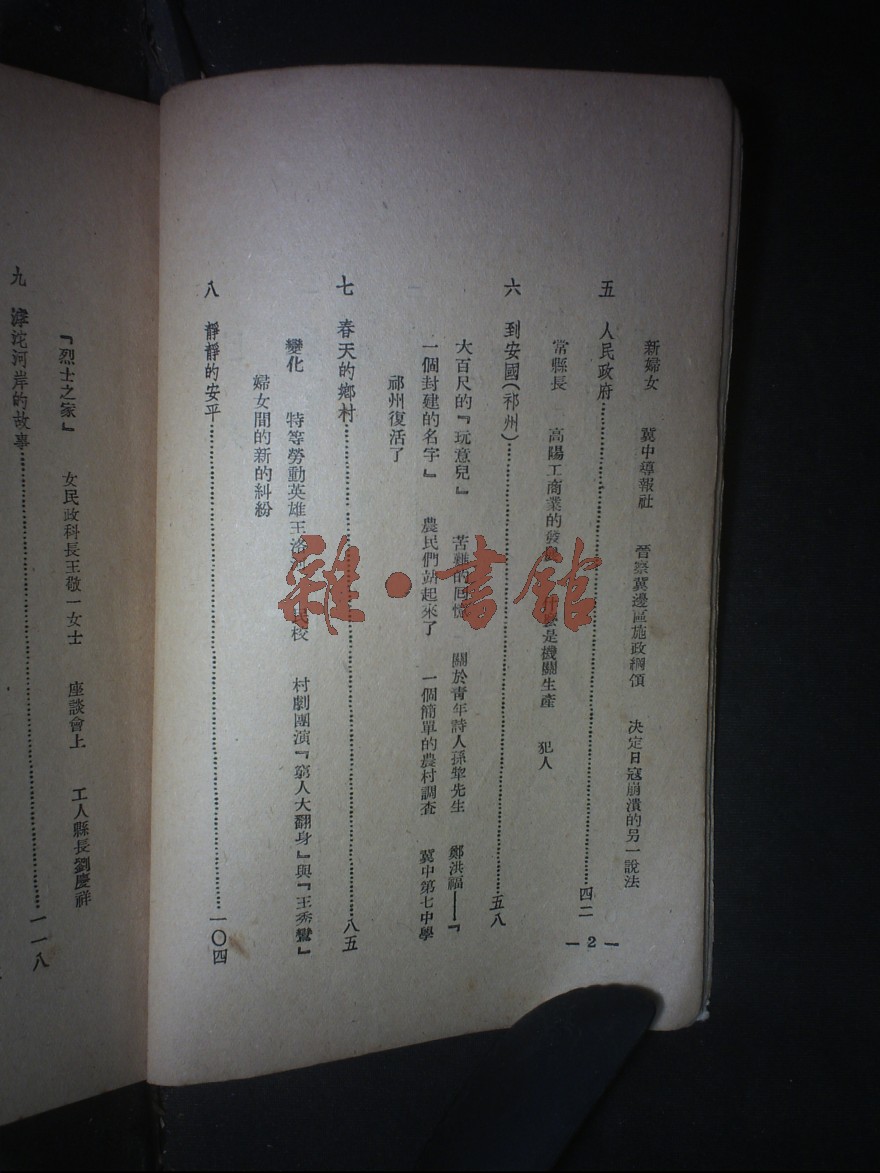 新婦女　冀中導報社　晉察冀邊區施政綱領　決定日寇崩潰的另一說法
五　人民政府……四二
常縣長　高陽工商業的發　是機關生產　犯人
六　到安國(祁州)……五八
大百尺的『玩意兒』　苦難的回憶　關於青年詩人孫犂先生　鄭洪福——『
一個封建的名字』　農民們站起來了　一個簡單的農村調查　冀中第七中學
祁州復活了
七　春天的鄉村……八五
變化　特等勞動英雄王洛　民校　村劇團演『窮人大翻身』與『王秀鸞』
婦女間的新的糾紛
八　靜靜的安平……一〇四
— 2 —
『烈士之家』　女民政科長王敬一女士　座談會上　工人縣長劉慶祥
九　滹沱河岸的故事……一一八
雜·書館